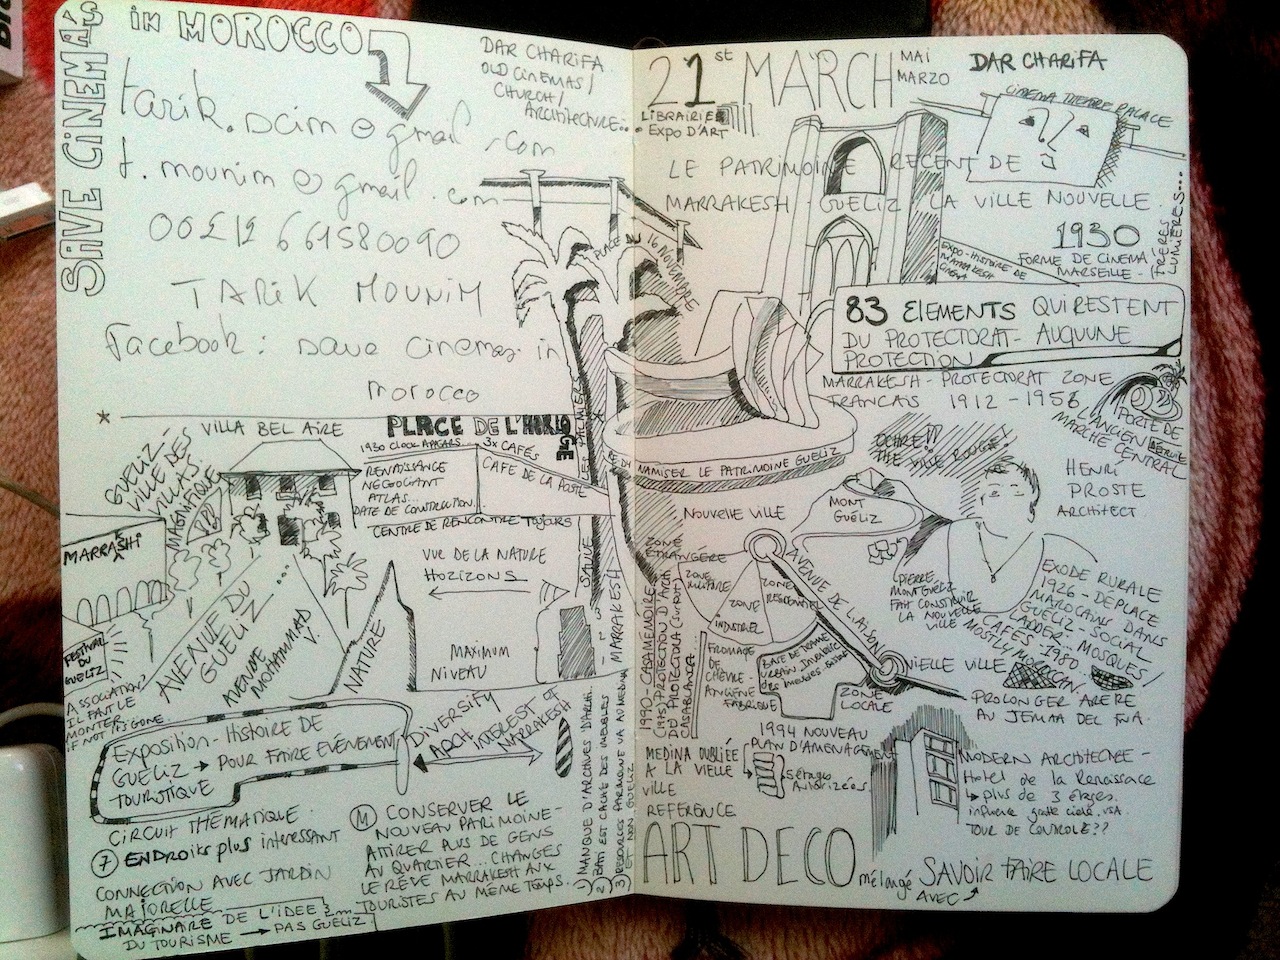 SAVE CINEMA'S
IN MOROCCO
tarik.scim@gmail.com
t.mounim@gmail.com
00212 661580090
TARIK MOUNIM
Facebook: save cinemas in
morocco
DAR CHARIFA
OLD CINEMAS/
CHURCH/
ARCHITECTURE...
VILLA BEL AIRE
GUELIZ
VILLE DES
VILLAS.
MAGNIFIQUE
MARRASHI
FESTIVAL
DU
GUELIZ
ASSOCIATION?
IL FAUT LE
MONTER.
IF NOT ITS GONE.
AVENUE DU
GUELIZ....
AVENUE
MOHAMMAD V.
PLACE DE L'HORLOGE
1930 CLOCK APPEARS... 3x CAFÉS
RENAISSANCE
NEGOCIANT
ATLAS...
DATE DE CONSTRUCTION.
CAFE DE LA POSTE
CENTRE DE RENCONTRE TOUJOURS
VUE DE LA NATURE
HORIZONS
NATURE
MAXIMUM
NIVEAU
DIVERSITY
ARCH
INTEREST OF
MARRAKESH
Exposition - HISTOIRE DE
GUELIZ → POUR FAIRE EVÉNEMENT
TOURISTIQUE
CIRCUIT THÉMATIQUE
7 ENDROITS plus interessant
CONNECTION AVEC JARDIN
MAJORELLE
IMAGINAIRE DE L'IDEE
DU TOURISME → PAS GUELIZ
M CONSERVER LE
NOUVEAU PATRIMOINE -
ATTIRER PLUS DE GENS
AU QUARTIER... CHANGES
LE RÊVE MARRAKESH AUX
TOURISTES AU MÊME TEMPS.
1) MANQUE D'ARCHIVES D'ARCHI.
2) BATI EST CACHÉ DES IMEUBLES
3) RESOURCES PATRIMOINE VA AU MEDINA
ET NON GUELIZ
21st MARCH
MAI
MARZO
DAR CHARIFA
LIBRAIRIE
EXPO D'ART
CINEMA THEATRE PALACE
LE PATRIMOINE RECENT DE
MARRAKESH - GUELIZ LA VILLE NOUVELLE.
PLACE DU 16 NOVEMBRE
1930
FORME DE CINEMA
MARSEILLE -
FRÈRES
LUMIÈRES...
EXPO - HISTOIRE DE
MARRAKESH
CINEMA
83 ELEMENTS QUI RESTENT
DU PROTECTORAT - AUQUUNE
PROTECTION
MARRAKESH - PROTECTORAT ZONE
FRANCAIS 1912 - 1956
PORTE DE
L'ANCIEN
MARCHÉ CENTRAL
REDYNAMISER LE PATRIMOINE GUELIZ
OCHRE!!
THE VILLE ROUGE
HENRI
PROSTE
ARCHITECT
NOUVELLE VILLE
MONT
GUÉLIZ
ZONE
ETRANGÈRE
ZONE
MILITAIRE
ZONE
RESIDENTIEL
ZONE
INDUSTRIEL
AVENUE DE LIAISON
PIERRE
MONT GUELIZ
FAIT CONSTRUIR
LA NOUVELLE
VILLE
EXODE RURALE
1926 - DÉPLACE
MAROCAINS DANS
GUELIZ - SOCIAL
LADDER. MOSQUES/
CAFES - 1980
MOSTLY MOROCCAN.
SAUVE LES PALMIERS
MARRAKESH
1990 - CASAMÉMOIRE
(1975) PROTECTION D'ARCH.
DU PROTECTORA (surtout)
CASABLANCA...
FROMAGE
DE
CHÈVRE -
ANCIÈNE
FABRIQUE
ZONE
LOCALE
VIELLE VILLE
PROLONGER ARERE
AU JEMAA DEL FNA.
1994 NOUVEAU
PLAN D'AMENAGEMENT
5 étages
Autorizées.
MEDINA OUBLIÉE
A LA VIELLE
VILLE
REFERENCE
MODERN ARCHITECTRE -
Hotel de la Renaissace
→ plus de 3 étages.
influence gratte ciele. USA
TOUR DE CONTROLE??
ART DECO
mélangé
AVEC
SAVOIR FAIRE LOCALE